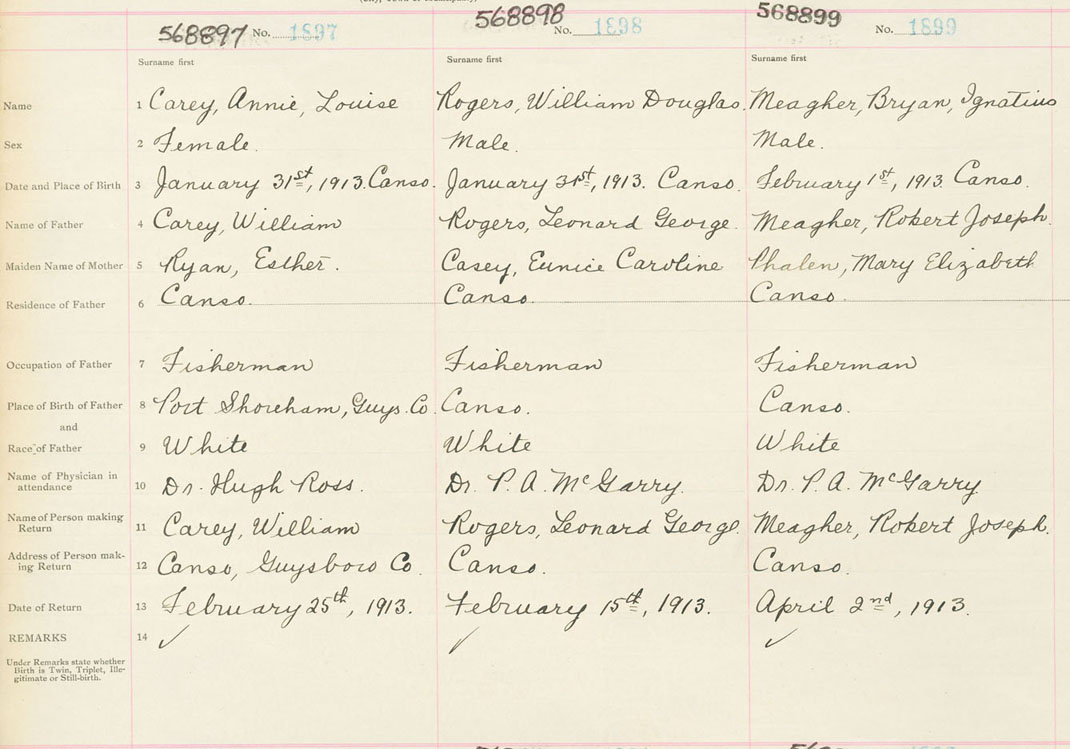 568897 No. 1897 568898 No. 1898 568899 No. 1899
Surname first Surname first Surname first
Name 1 Carey, Annie, Louise Rogers, William Douglas. Meagher, Bryan, Ignatius
Sex 2 Female. Male. Male.
Date and Place of Birth 3 January 31st, 1913. Canso. January 31st, 1913. Canso. February 1st, 1913. Canso.
Name of Father 4 Carey, William Rogers, Leonard George. Meagher, Robert Joseph.
Maiden Name of Mother 5 Ryan, Esther. Casey, Eunice Caroline Phalen, Mary Elizabeth
Residence of Father 6 Canso. Canso. Canso.
Occupation of Father 7 Fisherman Fisherman Fisherman
Place of Birth of Father 8 Port Shoreham, Guys. Co. Canso. Canso.
and
Race of Father 9 White White White
Name of Physician in
attendance 10 Dr. Hugh Ross. Dr. P. A. McGarry. Dr. P. A. McGarry
Name of Person making
Return 11 Carey, William Rogers, Leonard George. Meagher, Robert Joseph.
Address of Person mak-
ing Return 12 Canso, Guysboro Co. Canso. Canso.
Date of Return 13 February 25th, 1913. February 15th, 1913. April 2nd, 1913.
REMARKS 14 ✓ ✓ ✓
Under Remarks state whether
Birth is Twin, Triplet, Ille-
gitimate or Still-birth.